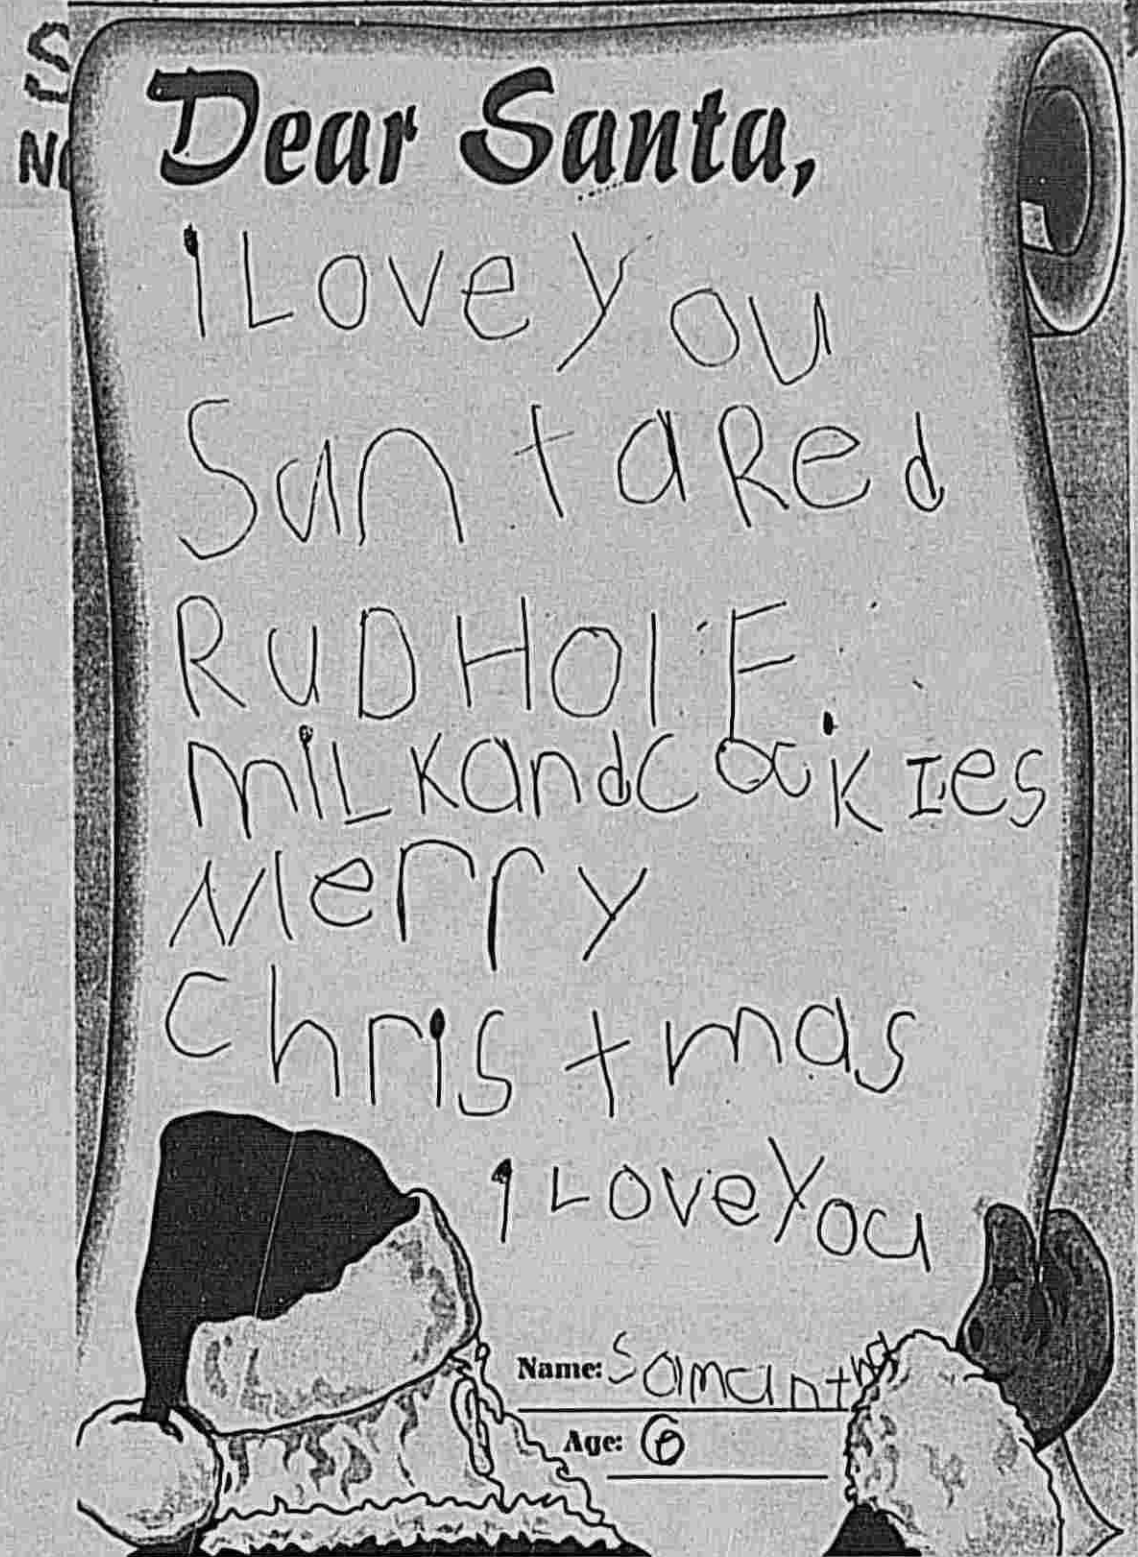 Dear Santa,
I Love you
Santa Red
RUDHOlF
MiLK and Cookies
Merry
Christmas
I Love You
Name: Samantha
Age: 6